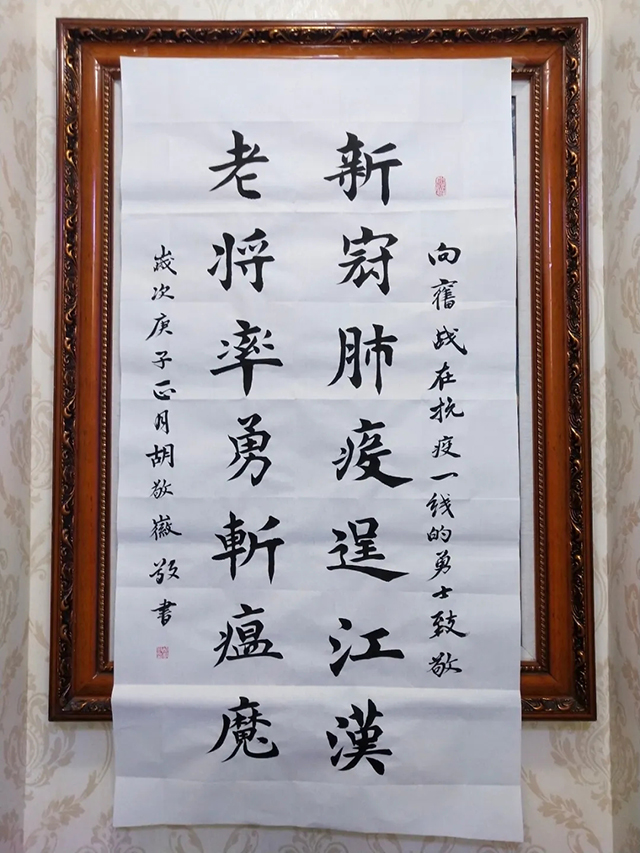 向奮战在抗疫一线的勇士致敬
新冠肺疫逞江漢
老将率勇斬瘟魔
歲次庚子正月胡敬徽敬書